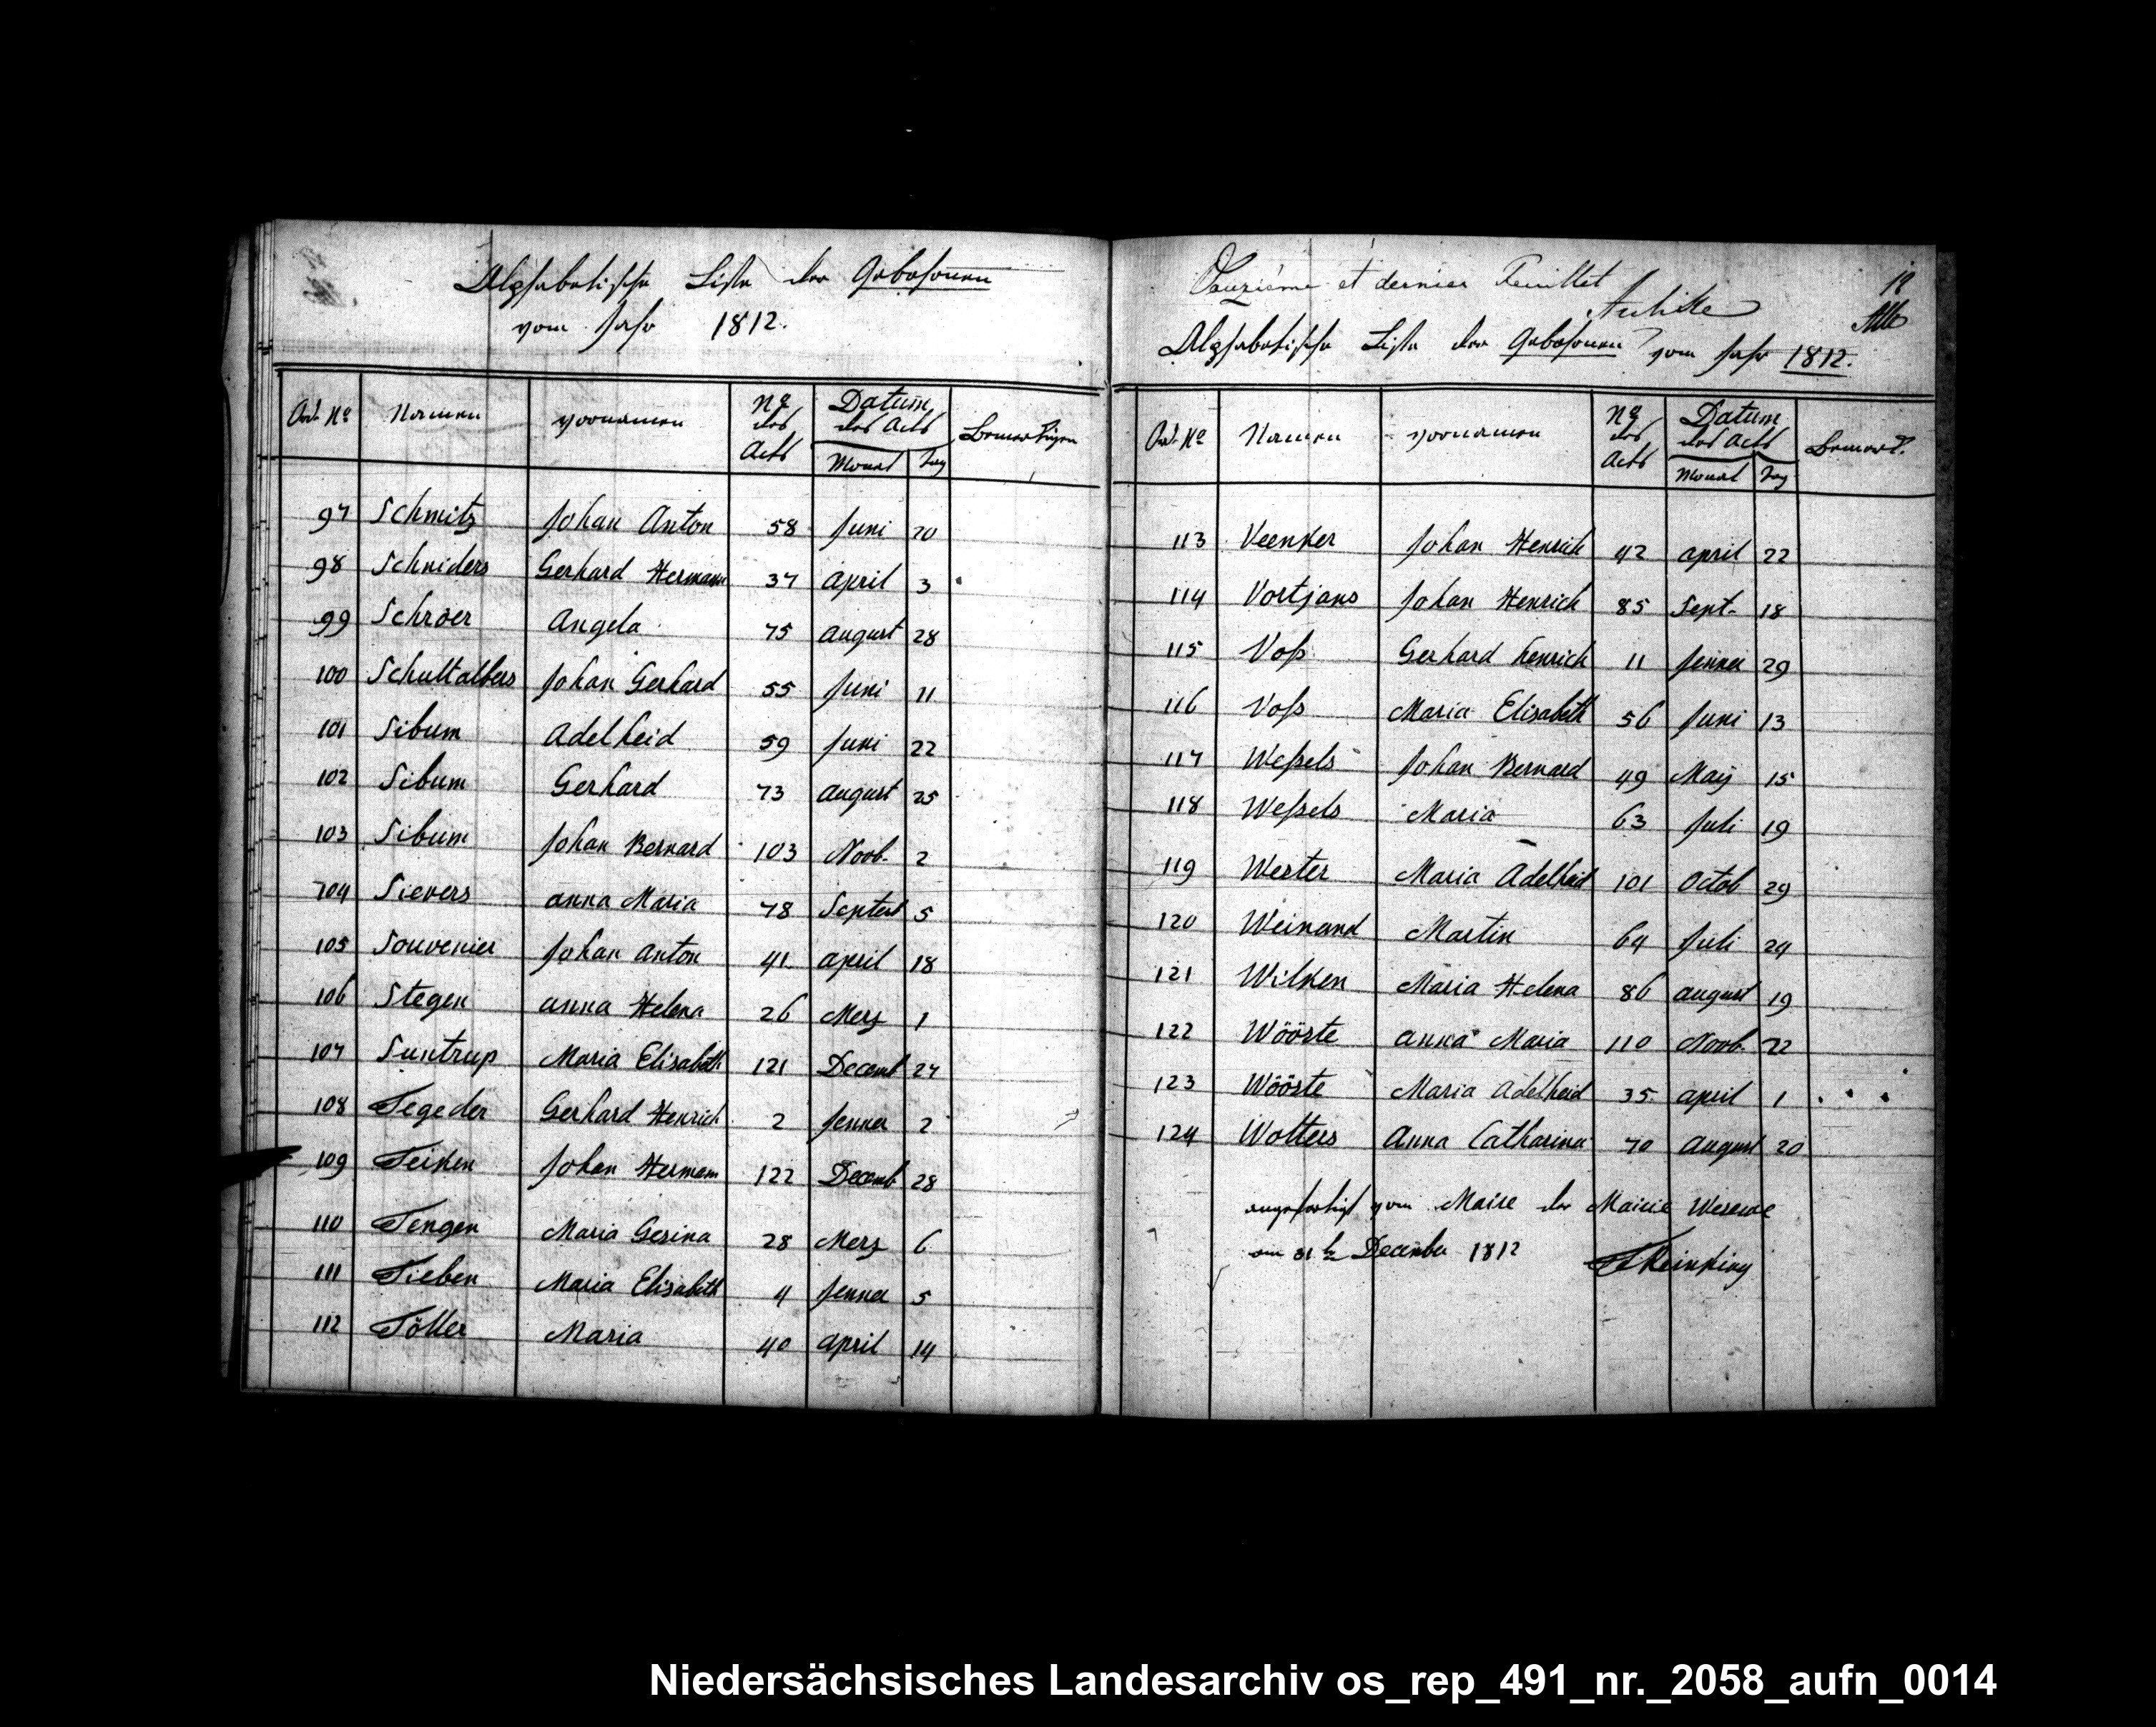 Alphabetische Liste der Gebohrnen
vom Jahr 1812.
Ord. No Namen Vornamen No des Acts Datum des Acts Monat Tag Bemerkungen
97 Schmitz Johan Anton 58 Juni 20
98 Schniders Gerhard Hermann 37 April 3
99 Schröer Angela 75 august 28
100 Schultalbers Johan Gerhard 55 Juni 11
101 Sibum Adelheid 59 Juni 22
102 Sibum Gerhard 73 august 25
103 Sibum Johan Bernard 103 Novb. 2
104 Sievers anna Maria 78 Septem 5
105 Souvenier Johan Anton 41 april 18
106 Stegen anna Helena 26 Merz 1
107 Suntrup Maria Elisabeth 121 Decemb 27
108 Tegeder Gerhard Henrich 2 Jenner 2
109 Teiken Johan Hermann 122 Decemb 28
110 Tengen Maria Gesina 28 Merz 6
111 Tieben Maria Elisabeth 4 Jenner 5
112 Töller Maria 40 april 14
Douzième et dernier Feuillet
12
Alphabetische Liste der Gebohrnen vom Jahr 1812.
Ord. No Namen Vornamen No des Acts Datum des Acts Monat Tag Bemerk.
113 Veenker Johan Henrich 42 april 22
114 Vortjans Johan Henrich 85 Sept. 18
115 Voß Gerhard henrich 11 Jenner 29
116 Voß Maria Elisabeth 56 Juni 13
117 Weßels Johan Bernard 49 Maÿ 15
118 Weßels Maria 63 Juli 19
119 Werter Maria Adelheid 101 Octob 29
120 Weinand Martin 64 Juli 24
121 Wilken Maria Helena 86 august 19
122 Wööste anna Maria 110 Novb. 22
123 Wööste Maria Adelheid 35 april 1
124 Wolters Anna Catharina 70 August 20
angefertigt vom Maire der Mairie Wesuwe
am 31 December 1812
Niedersächsisches Landesarchiv os_rep_491_nr._2058_aufn_0014